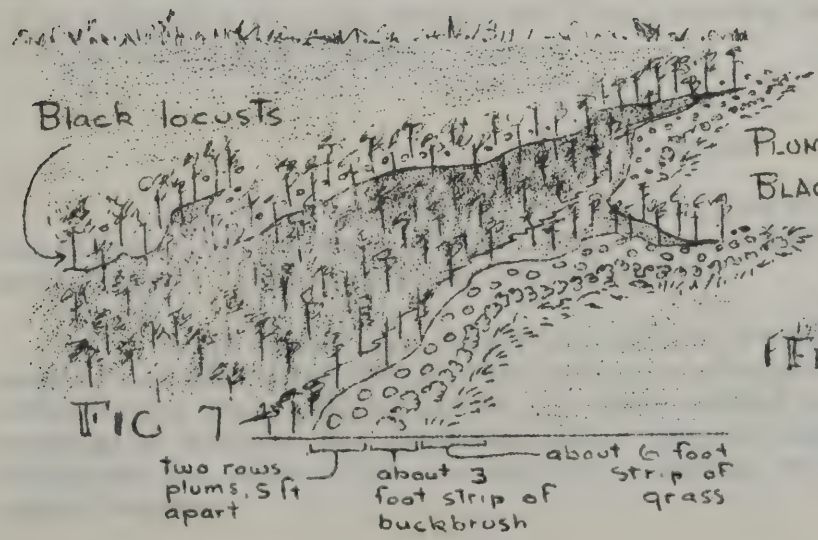 Black locusts
FIG 7
two rows
plums, 5 ft
apart
about 3
foot strip of
buckbrush
about 6 foot
strip of
grass